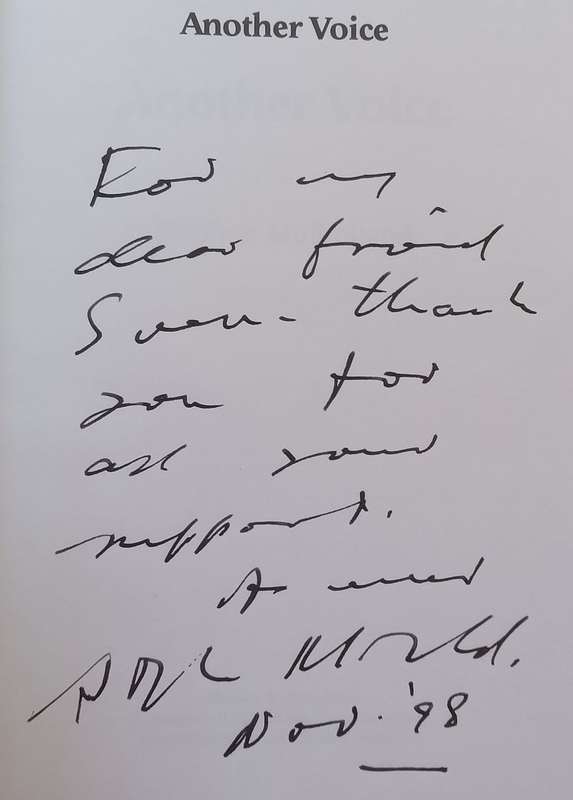 Another Voice
For my
dear friend
Sven - thank
you for
all your
support.
As ever
Nov. '98